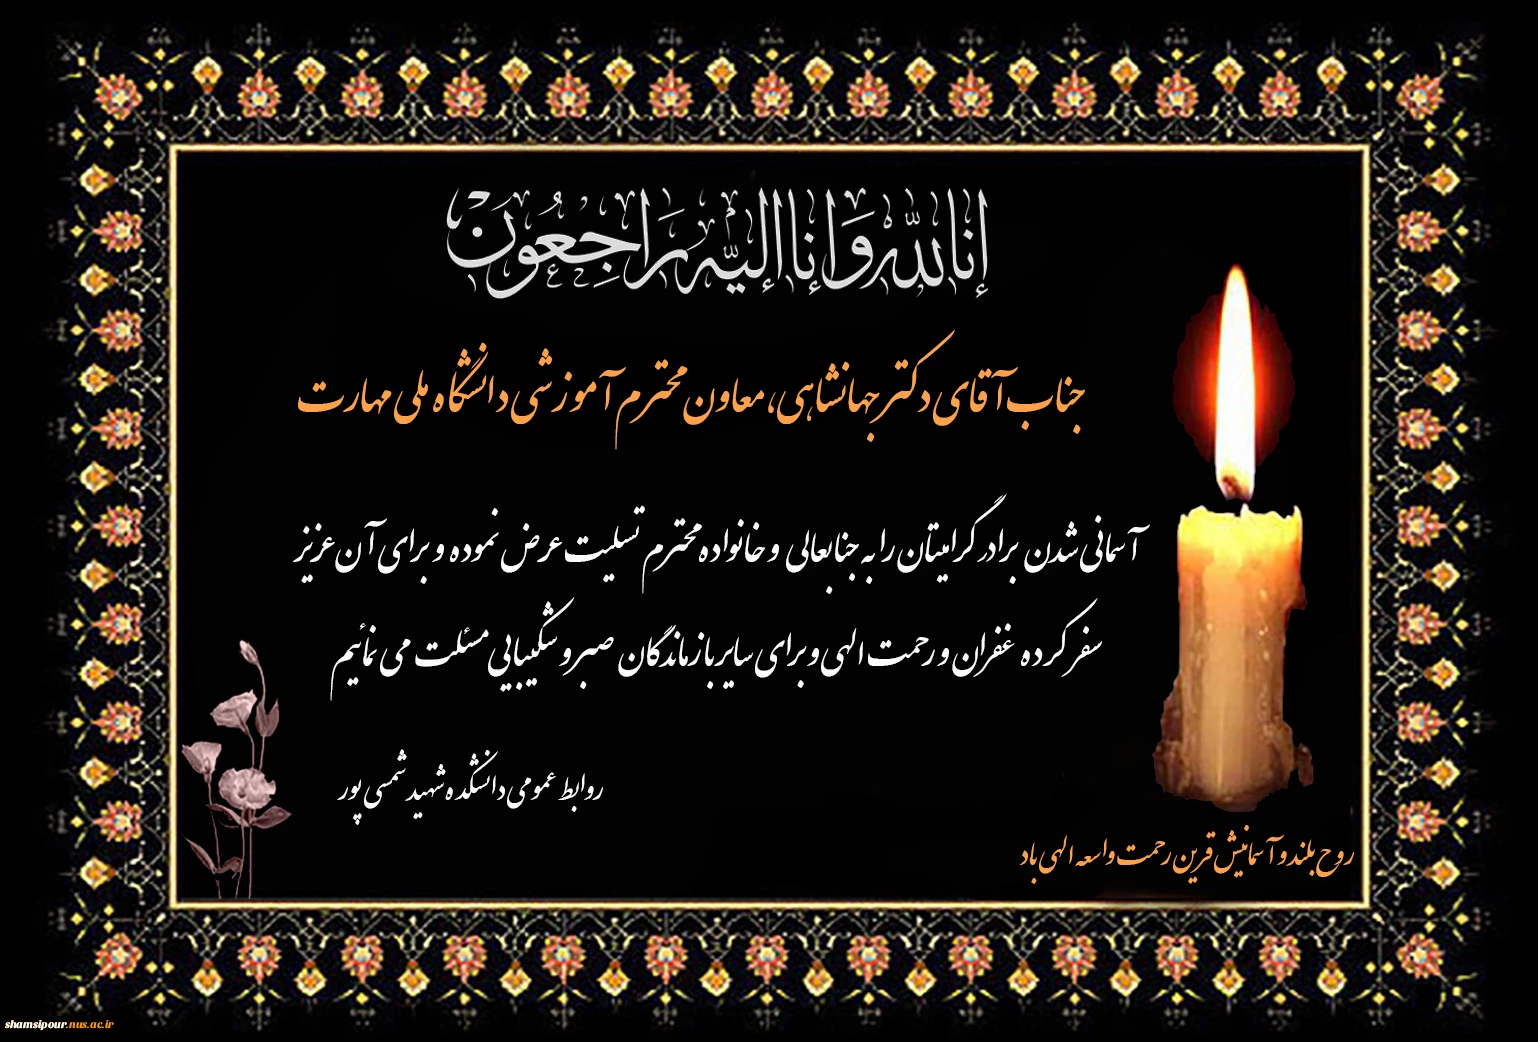 إنا لله وإنا إليه راجعون
جناب آقای دکتر جهانشاهی، معاون محترم آموزشی دانشگاه ملی مهارت
آسمانی شدن برادر گرامیتان را به جنابعالی و خانواده محترم تسلیت عرض نموده و برای آن عزیز
سفر کرده غفران و رحمت الهی و برای سایر بازماندگان صبر و شکیبایی مسئلت می نمائیم
روابط عمومی دانشکده شهید شمسی پور
روح بلند و آسمانیش قرین رحمت واسعه الهی باد
shamsipour.nus.ac.ir